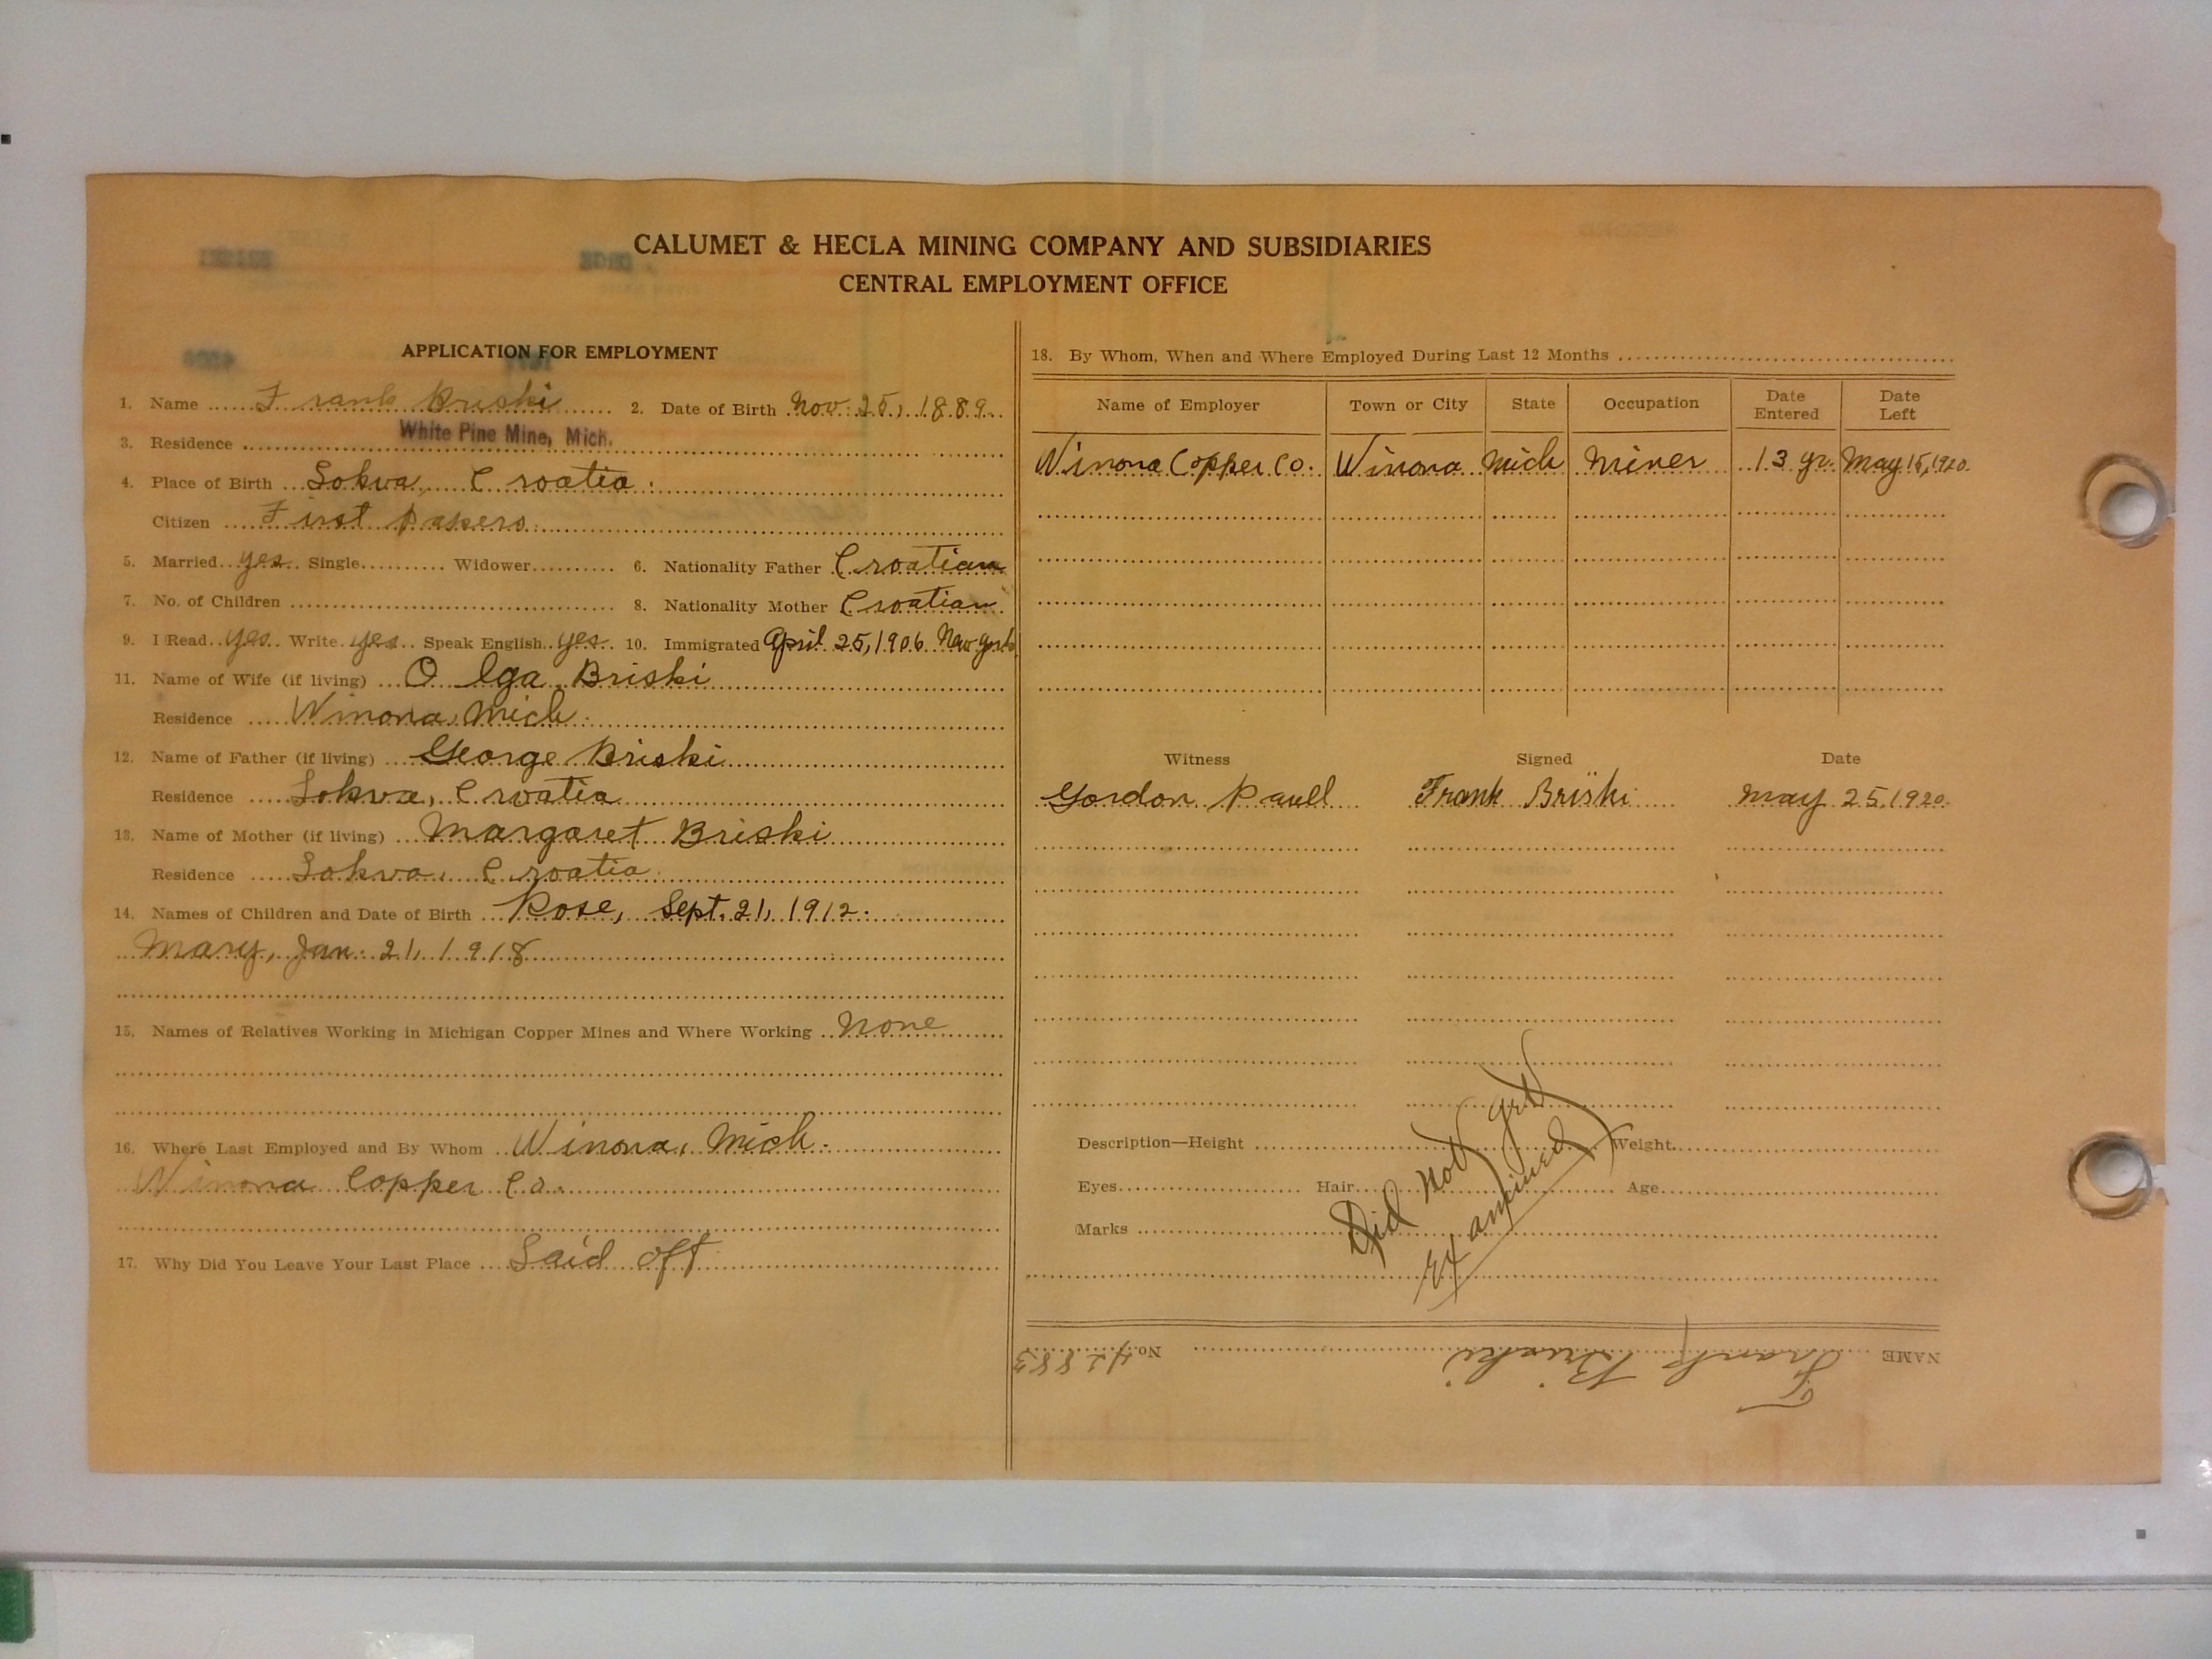 CALUMET & HECLA MINING COMPANY AND SUBSIDIARIES
CENTRAL EMPLOYMENT OFFICE
APPLICATION FOR EMPLOYMENT
1. Name Frank Briski 2. Date of Birth Nov. 25, 1889
3. Residence White Pine Mine, Mich.
4. Place of Birth Sokva, Croatia.
Citizen First Papers
5. Married yes Single Widower 6. Nationality Father Croatian
7. No. of Children 8. Nationality Mother Croatian
9. I Read yes Write yes Speak English yes 10. Immigrated April 25, 1906 New York
11. Name of Wife (if living) Olga Briski
Residence Winona, Mich.
12. Name of Father (if living) George Briski
Residence Sokva, Croatia
13. Name of Mother (if living) Margaret Briski
Residence Sokva, Croatia
14. Names of Children and Date of Birth Rose, Sept. 21, 1912.
Mary, Jan. 21, 1918
15. Names of Relatives Working in Michigan Copper Mines and Where Working None
16. Where Last Employed and By Whom Winona, Mich.
Winona Copper Co.
17. Why Did You Leave Your Last Place Laid off
18. By Whom, When and Where Employed During Last 12 Months
Name of Employer Town or City State Occupation Date Entered Date Left
Winona Copper Co. Winona Mich Miner 13 yr. May 15, 1920.
Witness Signed Date
Gordon Paull Frank Briski May 25, 1920.
Description—Height Weight
Eyes Hair Age
Marks
Did not get
examined
NAME Frank Briski No. 42883